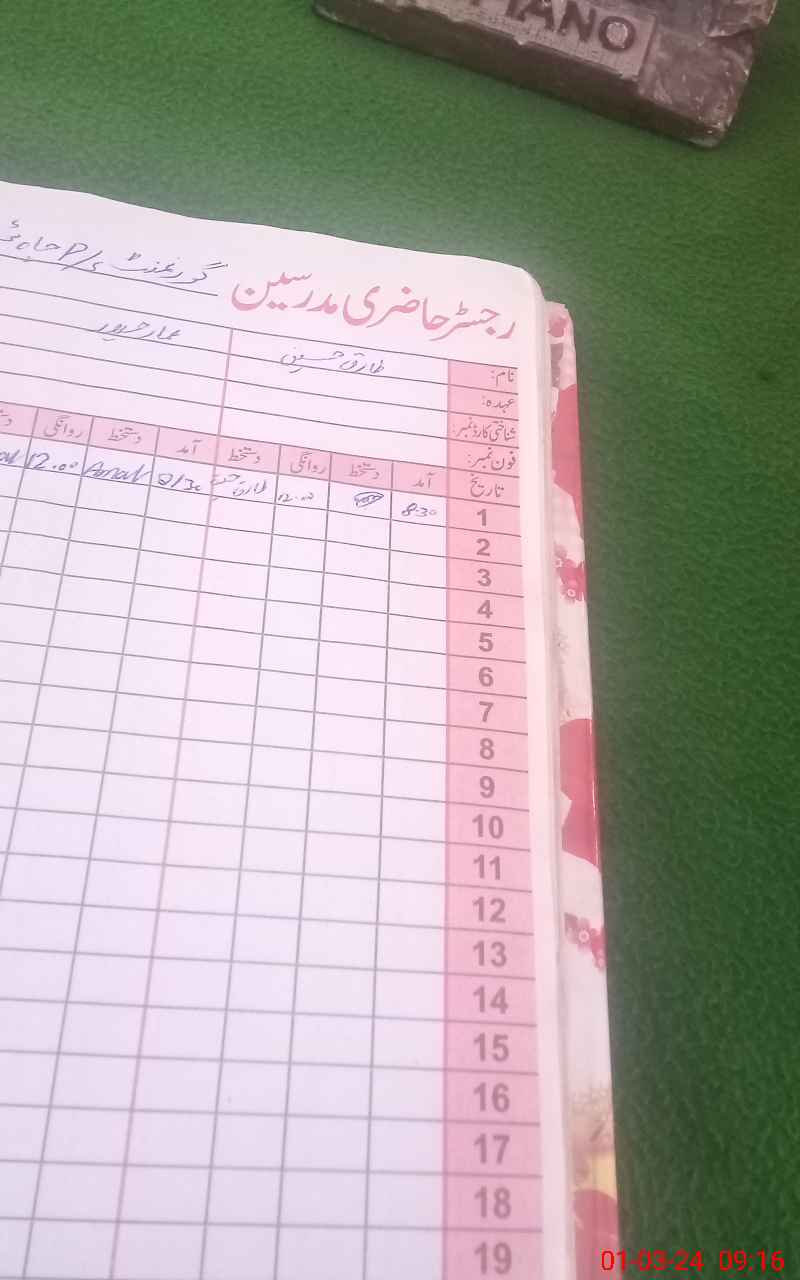 PIANO
رجسٹر حاضری مدرسین گورنمنٹ P/S
نام: طارق حسین
عہدہ:
شناختی کارڈ نمبر:
فون نمبر:
تاریخ آمد دستخط روانگی دستخط آمد دستخط روانگی
1 8:30 12:00 طارق حسین 8/30 12:00
2
3
4
5
6
7
8
9
10
11
12
13
14
15
16
17
18
19
01-03-24 09:16